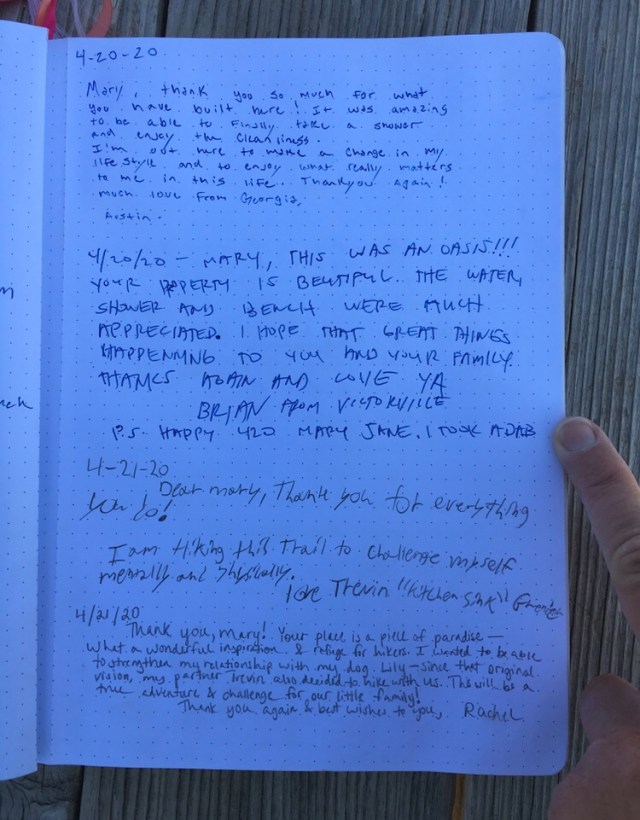 4-20-20
Mary, thank you so much for what
you have built here! It was amazing
to be able to Finally take a shower
and enjoy the cleanliness.
I'm out here to make a change in my
lifestyle and to enjoy what really matters
to me in this life. Thankyou again!
much love From Georgia,
Austin.
4/20/20 - MARY, THIS WAS AN OASIS!!!
YOUR PROPERTY IS BEUTIFUL. THE WATER,
SHOWER AND BENCH WERE MUCH
APPRECIATED. I HOPE THAT GREAT THINGS
HAPPENNING TO YOU AND YOUR FAMILY.
THANKS AGAIN AND LOVE YA
BRYAN FROM VICTORVILLE
P.S. HAPPY 420 MARY JANE. I TOOK A DAB
4-21-20
Dear mary, Thank you for everything
you do!
I am Hiking this Trail to challenge myself
mentally and Physically.
love Trevin "Kitchen Sink"
4/21/20
Thank you, Mary! Your place is a piece of paradise —
What a wonderful inspiration & refuge for hikers. I wanted to be able
to strengthen my relationship with my dog. Lily - Since that original
vision, my partner Trevin also decided to hike with us. This will be a
true adventure & challenge for our little family!
Thank you again & best wishes to you, Rachel